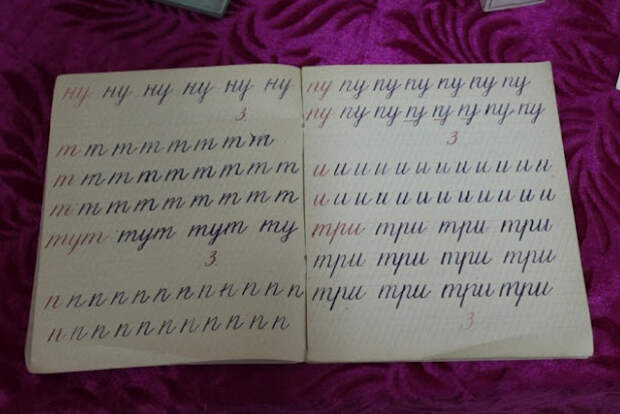 ну ну ну ну ну ну
3
т т т т т т т т
т т т т т т т т т
т т т т т т т т т
тут тут тут ту
3
п п п п п п п п п п п п
п п п п п п п п п п п
пу пу пу пу пу пу пу
пу пу пу пу пу пу пу пу
3
и и и и и и и и и и и
и и и и и и и и и и и
три три три три
три три три три
три три три три
3